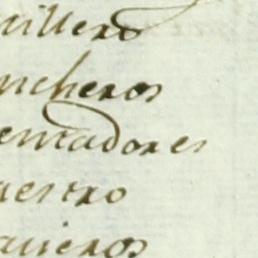 uillero
ncheros
entadores
aestro
auieros